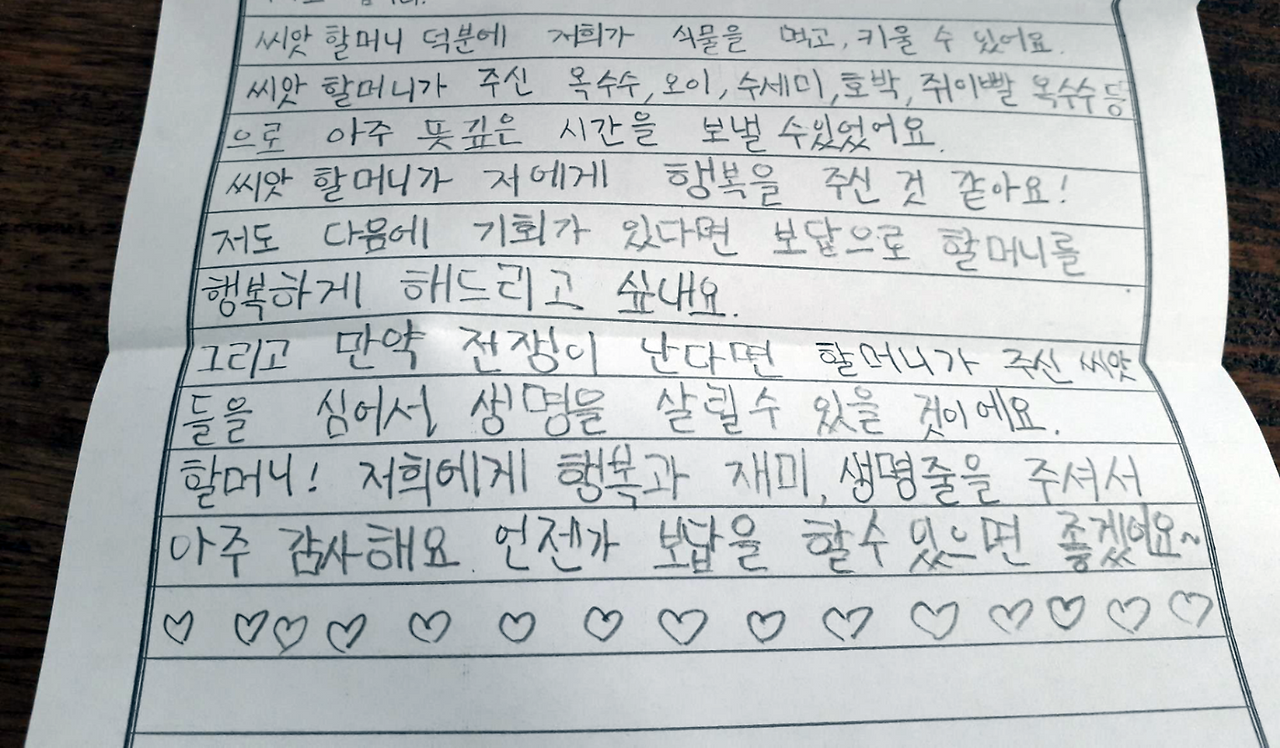 씨앗 할머니 덕분에 저희가 식물을 먹고, 키울 수 있어요.
씨앗 할머니가 주신 옥수수, 오이, 수세미, 호박, 쥐이빨 옥수수 등
으로 아주 뜻깊은 시간을 보낼 수있었어요.
씨앗 할머니가 저에게 행복을 주신 것 같아요!
저도 다음에 기회가 있다면 보답으로 할머니를
행복하게 해드리고 싶내요.
그리고 만약 전쟁이 난다면 할머니가 주신 씨앗
들을 심어서 생명을 살릴수 있을 것이에요.
할머니! 저희에게 행복과 재미, 생명줄을 주셔서
아주 감사해요. 언젠가 보답을 할수 있으면 좋겠어요~
♡ ♡ ♡ ♡ ♡ ♡ ♡ ♡ ♡ ♡ ♡ ♡ ♡ ♡ ♡